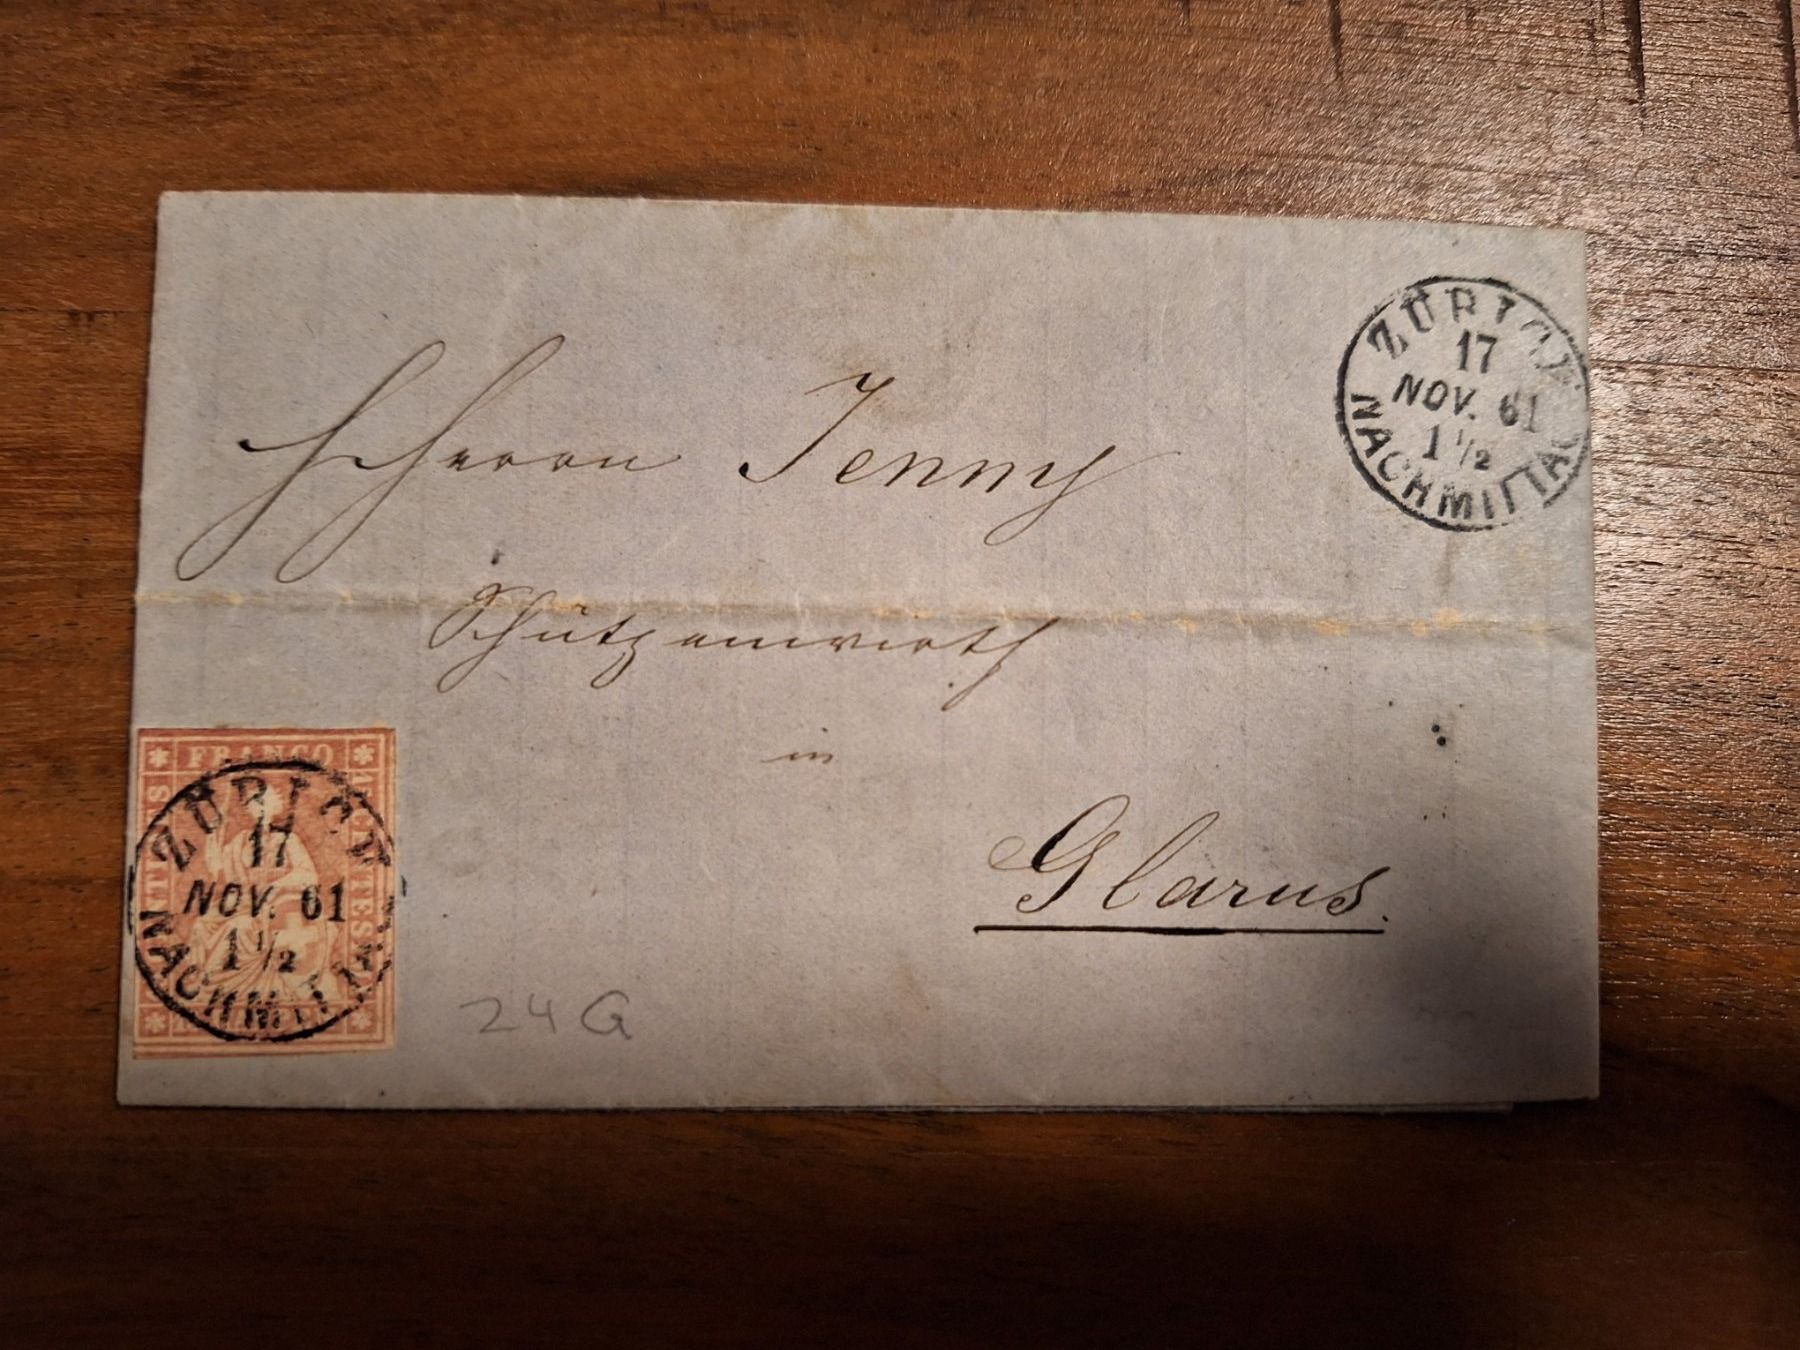 ZÜRICH
17
NOV. 61
1 1/2
NACHMITTAG
Herrn Jenny
Schützenwirth
in
Glarus.
FRANCO
ZÜRICH
17
NOV. 61
1 1/2
NACHMITTAG
24 G